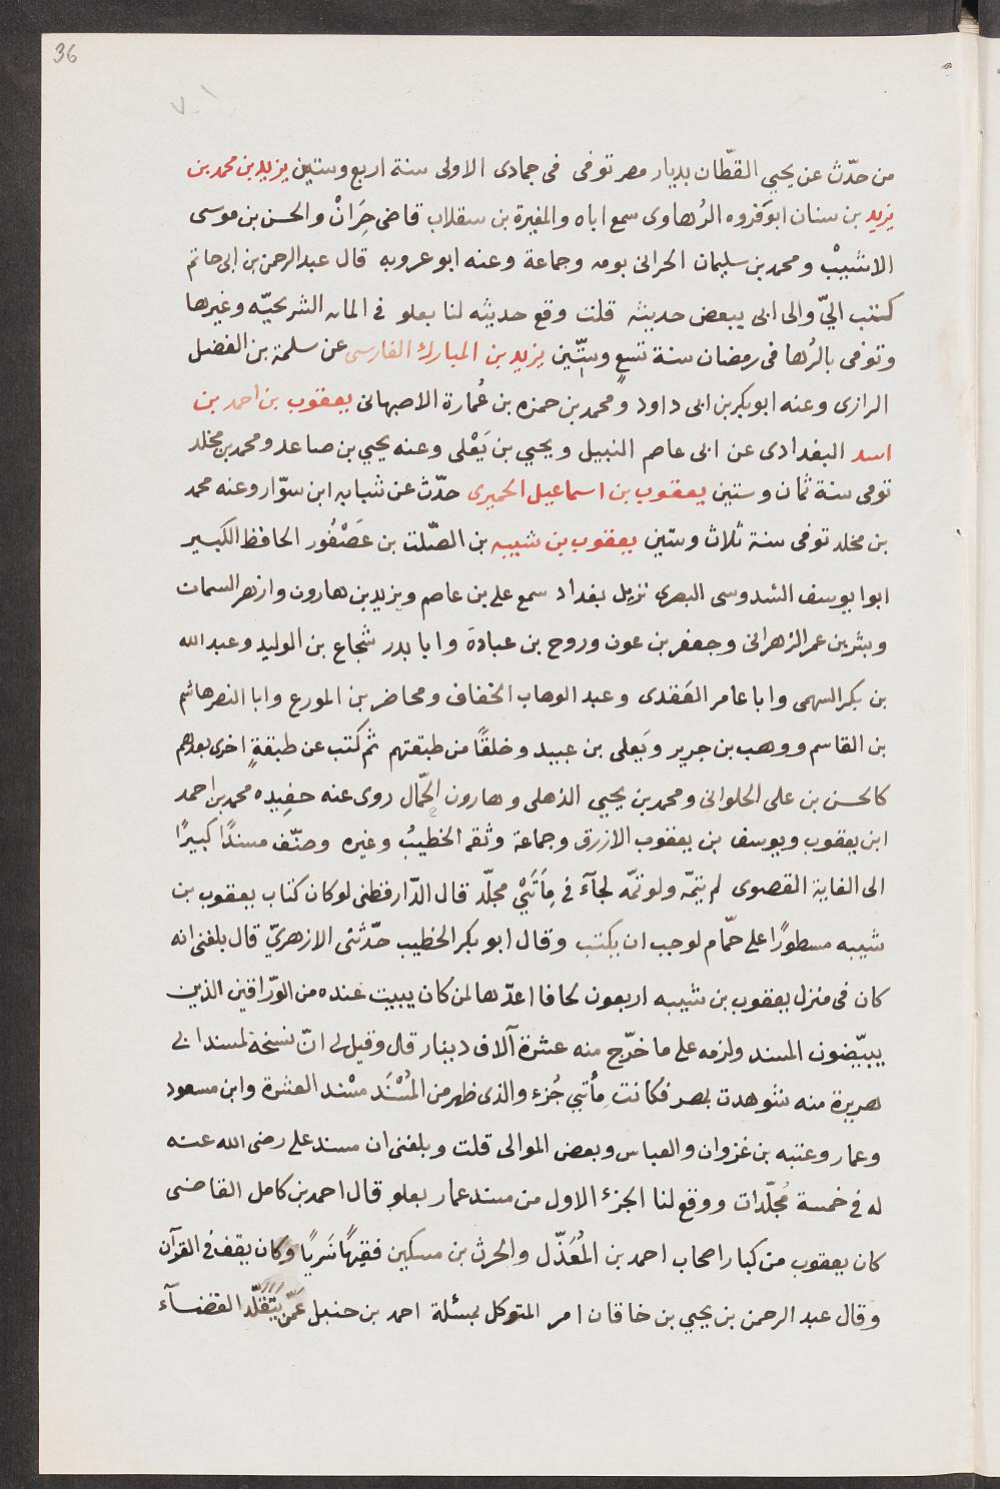 36
٧٠١
من حدّث عن يحيي القطّان بديار مصر توفى فى جمادى الاولى سنة اربع وستين يزيد بن محمد بن
يزيد بن سنان ابو فروه الرُهاوى سمع اباه والمغيرة بن سقلاب قاضى حَرَانْ والحسن بن موسى
الاشيبْ ومحمد بن سليمان الحرانى بومه وجماعة وعنه ابو عروبه قال عبد الرحمن بن ابى حاتم
كتب اليّ والى ابى ببعض حديثه قلت وقع حديثه لنا بعلو فى المايه الشريحيّه وغيرها
وتوفى بالرُها فى رمضان سنة تسعٍ وستّين يزيد بن المبارك الفارسى عن سلمة بن الفضل
الرازى وعنه ابو بكر بن ابى داود ومحمد بن حمزه بن عُمارة الاصبهانى يعقوب بن احمد بن
اسد البغدادى عن ابى عاصم النبيل ويحيي بن يَعْلى وعنه يحيي بن صاعد ومحمد بن مخلد
توفى سنة ثمان وستين يعقوب بن اسماعيل الحميرى حدّث عن شبابه ابن سوّار وعنه محمد
بن مخلد توفى سنة ثلاث وستين يعقوب بن شيبه بن الصّلت بن عَصْفُور الحافظ الكبير
ابوا يوسف السّدوسى البصرى نزيل بغداد سمع على بن عاصم ويزيد بن هارون وازهر السمات
وبشر بن عمر الزهرانى وجعفر بن عون وروح بن عبادة وابا بدر شجاع بن الوليد وعبد الله
بن بكر السهمى وابا عامر العَقدى وعبد الوهاب الخفاف ومحاضر بن المورع وابا النصر هاشم
بن القاسم ووهب بن جرير ويَعلى بن عبيد وخلقًا من طبقتهم ثم كتب عن طبقةٍ اخرى بعدهم
كالحسن بن على الحلوانى ومحمد بن يحيي الذهلى وهارون الحّمال روى عنه حفِيده محمد بن احمد
ابن يعقوب ويوسف بن يعقوب الازرق وجماعة وثقه الخطيبُ وغيره وصنّف مسندًا كبيرًا
الى الغاية القصوى لم يتمّه ولو تمّه لجآء فى مِأتَىْ مجلّد قال الدّارقطنى لو كان كتاب يعقوب بن
شيبه مسطورًا على حمّام لوجب ان يكتب وقال ابو بكر الخطيب حدّثنى الازهريّ قال بلغنى انه
كان فى منزل يعقوب بن شيبه اربعون لحافا اعدّها لمن كان يبيت عنده من الورّاقين الذين
يبيّضون المسند ولزمه على ما خرّج منه عشرة آلاف دينار قال وقيل لى انّ نسخة لمسند ابى
هريرة منه شوهدت بمصر فكانت مِأتي جُزء والذى ظهر من المُسْنَد مسْند العشرة وابن مسعود
وعمار وعتبه بن غزوان والعباس وبعض الموالى قلت وبلغنى ان مسند على رضى الله عنه
له فى خمسة مُجلّدات ووقع لنا الجزء الاول من مسند عمار بعلو قال احمد بن كامل القاضى
كان يعقوب من كبار اصحاب احمد بن المُعَذّل والحرث بن مسكين فقيهًا سَريًا وكان يقف فى القرآن
وقال عبد الرحمن بن يحيي بن خاقان امر المتوكل بمسئلة احمد بن حنبل عَمّن يَتَقلّد القضآء